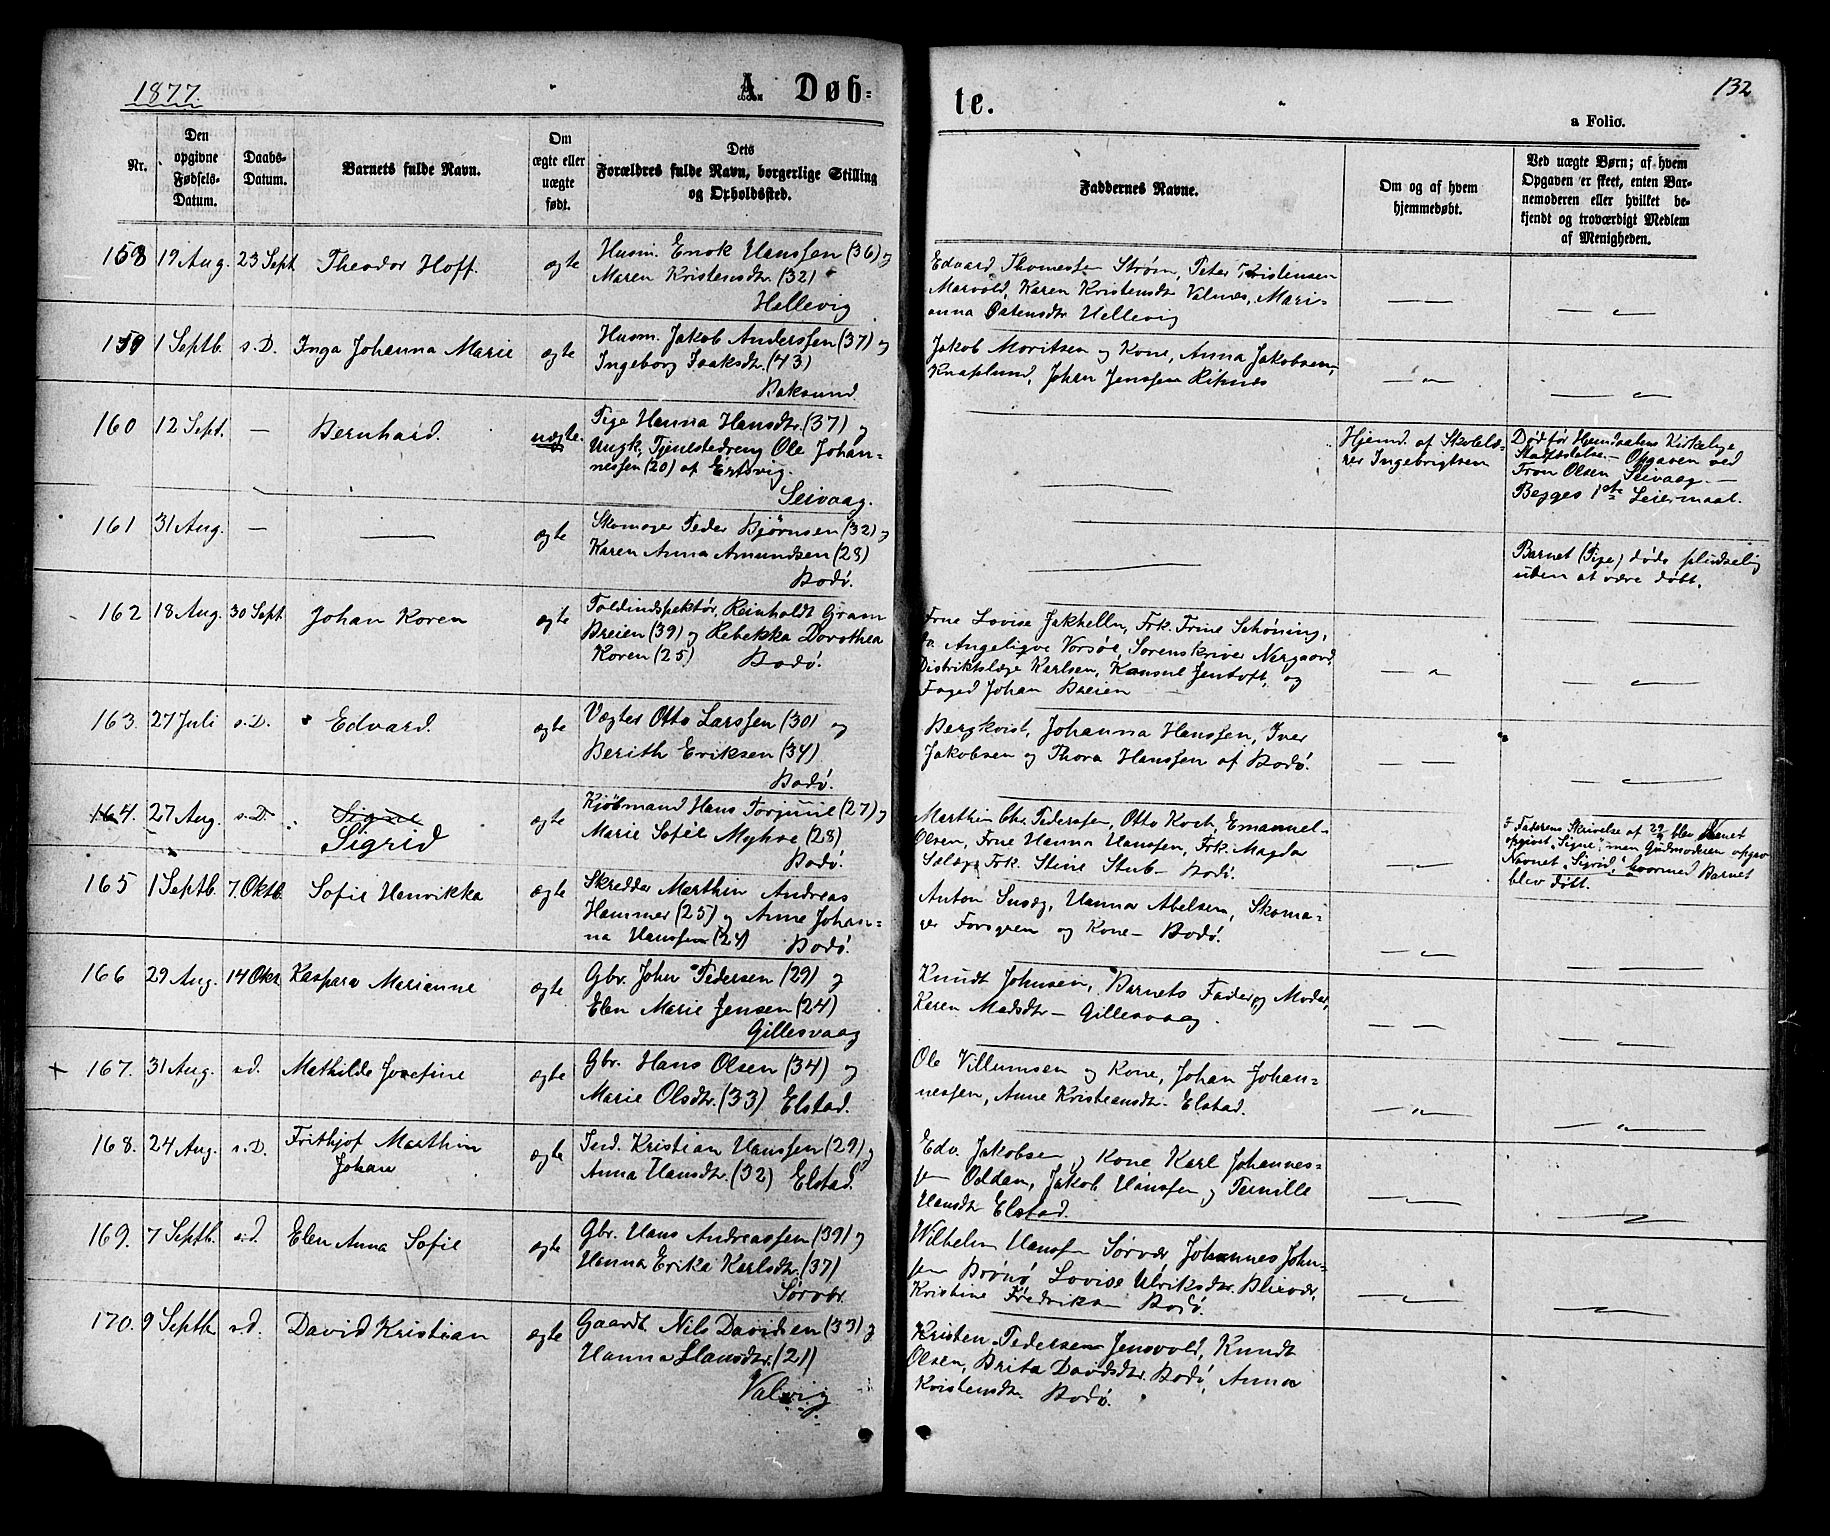 1877.
A. Døb=
te.
132
a Folio.
Nr.
Den opgivne Fødsels-Datum.
Daabs-Datum.
Barnets fulde Navn.
Om ægte eller uægte født.
Dets Forældres fulde Navn, borgerlige Stilling og Opholdssted.
Faddernes Navne.
Om og af hvem hjemmedøbt.
Ved uægte Børn; af hvem Opgaven er skeet, enten Barnemoderen eller hvilket bekjendt og troværdigt Medlem af Menigheden.
158 19 Aug. 23 Sept Theodor Hoff. ægte Husm. Enok Hanssen (36) og
Maren Kristensdtr. (32)
Hellevig
Edvard Thomessen Strøm, Peter Kristensen
Marvold, Karen Kristensdtr Valnes, Mari-
anna Østensdtr Hellevig
159 1 Septb. s.D. Inga Johanna Marie ægte Husm. Jakob Anderssen (37) og
Ingeborg Isaksdtr. (43)
Baksund.
Jakob Moritsen og Kone, Anna Jakobsen,
Knaplund, Johan Jenssen Ripnes
160 12 Sept. — Bernhard. uægte. Pige Hanna Hansdtr. (37) og
Ungk. Tjenestedreng Ole Johan-
nessen (20) af Ertsvig.
Seivaag.
Hjemd. af Skolelæ-
rer Ingebrigtsen
Død før Hjemdaabens Kirkelige
Stadfæstelse. — Opgaven ved
Fron Olsen Seivaag. —
Begges 1ste Leiermaal.
161 31 Aug. — — ægte Skomager Peder Bjørnsen (32) og
Karen Anna Amundsen (28)
Bodø.
Barnet (Pige) døde pludselig
uden at være døbt.
162 18 Aug. 30 Sept Johan Koren ægte Toldinspektør Reinholdt Gram
Breien (39) og Rebekka Dorothea
Koren (25) Bodø.
Frue Lovise Jakhelln, Frk. Trine Schøning,
do. Angelique Vorsøe, Sorenskriver Nergaard,
Distriktslæge Karlsen, Konsul Jentoft, og
Foged Johan Breien
163. 27 Juli s.D. Edvard. ægte Vægter Otto Larssen (30) og
Berith Eriksen (34)
Bodø.
Bergkvist, Johanna Hanssen, Iver
Jakobsen og Thora Hanssen af Bodø.
164. 27 Aug. s.D. Signe
Sigrid
ægte Kjøbmand Hans Torjuul (27) og
Marie Sofie Myhre (28)
Bodø.
Marthin Chr. Pederssen, Otto Koch, Emanuel
Olsen, Frue Hanna Hanssen, Frk. Magda
Selæg, Frk. Stine Stub — Bodø.
I Faderens Skrivelse af 22/9 blev Navnet
opgivet "Signe", men Gudmoderen opgav
Navnet "Sigrid", hvormed Barnet
blev døbt.
165 1 Septb. 7. Oktb. Sofie Henrikka ægte Skredder Marthin Andreas
Hammer (25) og Anne Johan-
na Hanssen (24) Bodø.
Anton Susæg, Hanna Abelsen, Skoma-
ger Forsgren og Kone — Bodø.
166 29 Aug. 14 Okt. Kaspara Marianne ægte Gbr. John Pedersen (29) og
Elen Marie Jensen (24)
Gillesvaag
Knudt Johnsen, Barnets Fader og Moder,
Karen Madsdtr — Gillesvaag.
+ 167. 31 Aug. s.d. Mathilde Josefine ægte Gbr. Hans Olsen (34) og
Marie Olsdtr. (33) Elstad.
Ole Villumsen og Kone, Johan Johan-
nessen, Anne Kristiansdtr. Elstad.
168. 24 Aug. s.D. Frithjof Marthin
Johan
ægte Ind. Kristian Hanssen (29) og
Anna Hansdtr. (32) Elstad.
Edv. Jakobsen og Kone, Karl Johannes-
sen Oddan, Jakob Hanssen og Pernille
Hansdtr Elstad.
169. 7 Septb. s.d. Elen Anna Sofie ægte Gbr. Hans Andreassen (39) og
Hanna Erika Karlsdtr. (37)
Sørvær.
Wilhelm Hanssen Sørvær, Johannes John-
sen Brønø, Lovise Ulriksdtr. Blievær,
Kristine Fredriksen Bodø.
170. 9 Septb. s.d. David Kristian ægte Gaardt. Nils Davidsen (33) og
Hanna Hansdtr. (21)
Valvig
Kristen Pedersen Jensvold, Knudt
Olsen, Brita Davidsdtr. Bodø, Anna
Kristensdtr. Bodø.